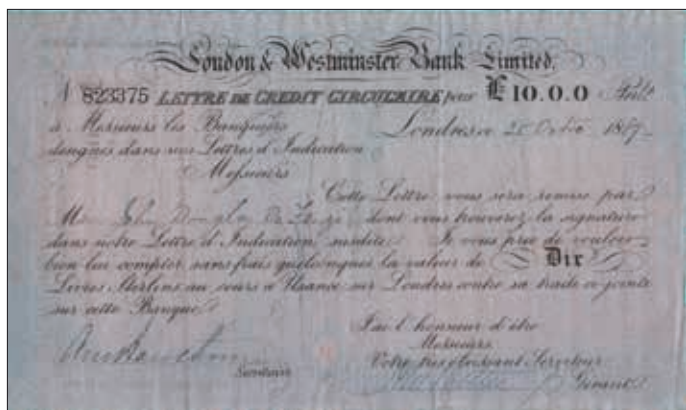 London & Westminster Bank Limited.
N 823375 LETTRE DE CREDIT CIRCULAIRE pour £10.0.0
à Messieurs les Banquiers Londres ce 25 1889
désignés dans nos Lettres d'Indication
Messieurs
Cette Lettre vous sera remise par
M John Douglas dont vous trouverez la signature
dans notre Lettre d'Indication susdite. Je vous prie de vouloir
bien lui compter sans frais quelconques la valeur de Dix
Livres Sterling au cours à Usance sur Londres contre sa traite ci-jointe
sur cette Banque.
J'ai l'honneur d'être
Messieurs
Votre très obéissant Serviteur
Gérant